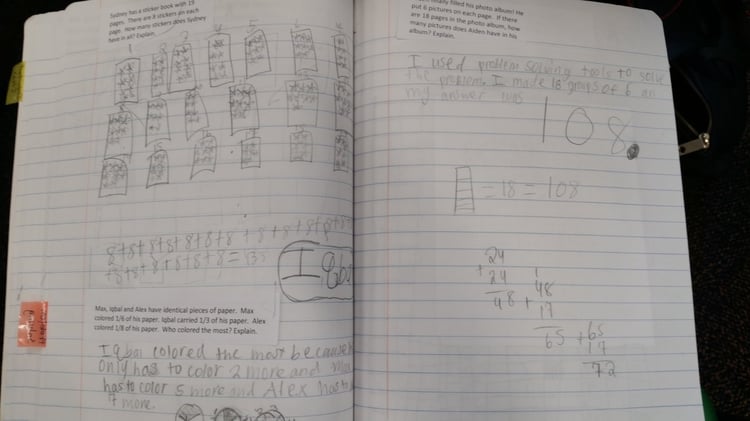 Sydney has a sticker book with 19
pages. There are 8 stickers on each
page. How many stickers does Sydney
have in all? Explain.
1 2 3 4 5
8+8+8+8+8+8+8+8+8+8+8+8
+8+8+8+8+8+8+8=
Iqbal
Max, Iqbal and Alex have identical pieces of paper. Max
colored 1/6 of his paper. Iqbal carried 1/3 of his paper. Alex
colored 1/8 of his paper. Who colored the most? Explain.
Iqbal colored the most because
only has to color 2 more and
has to color 5 more and Alex has to
7 more.
filled his photo album! He
put 6 pictures on each page. If there
are 18 pages in the photo album, how
many pictures does Aiden have in his
album? Explain.
I used problem solving tools to solve
the problem. I made 18 groups of 6 an
my answer was
108.
=18=108
24
+24
48
1
48
+17
65
+65
17
72